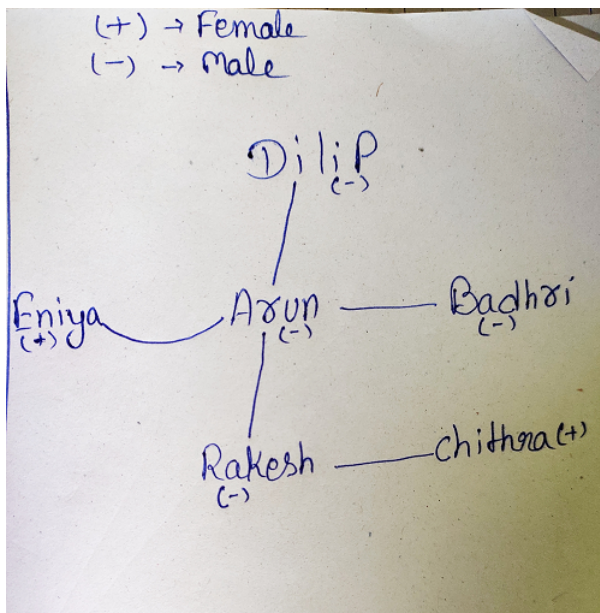 (+) → Female
(-) → Male
Dilip
(-)
Eniya Arun Badhri
(+) (-) (-)
Rakesh chithra (+)
(-)